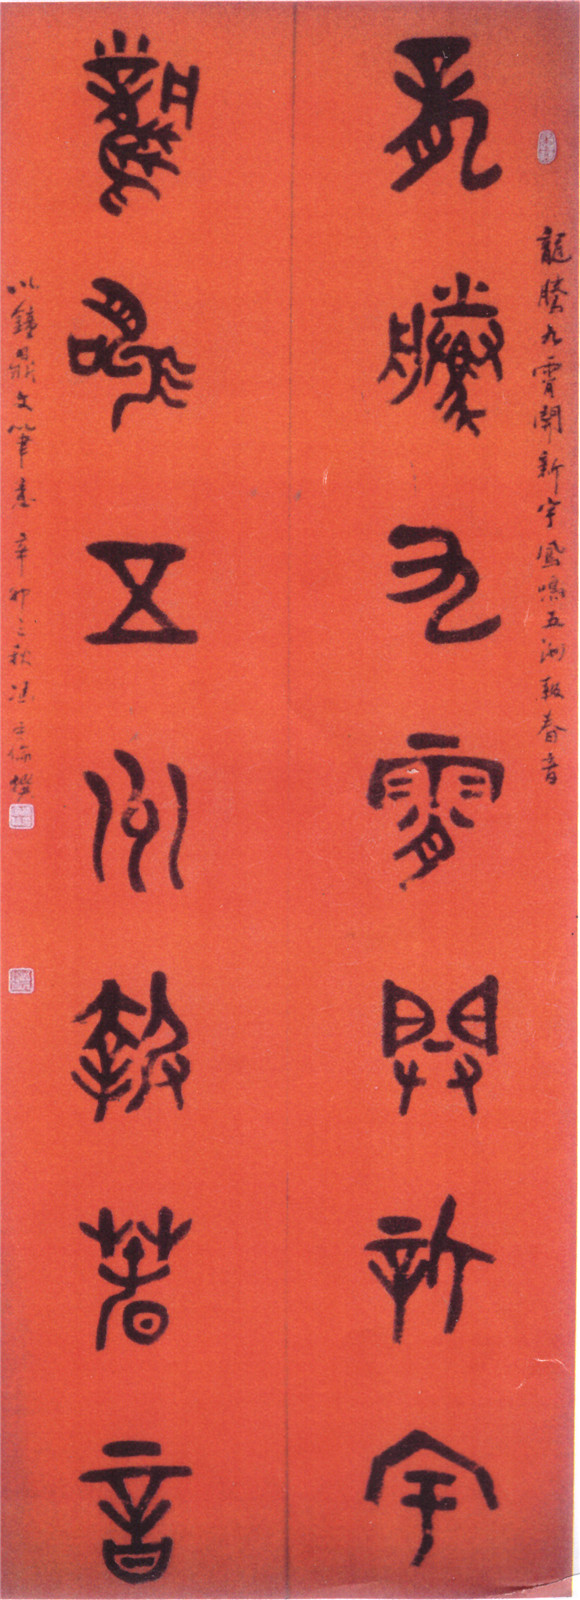 龍騰九霄開新宇鳳鳴五洲報春音
龍騰九霄開新宇
鳳鳴五洲報春音
以鐘鼎文筆意辛卯之秋馮